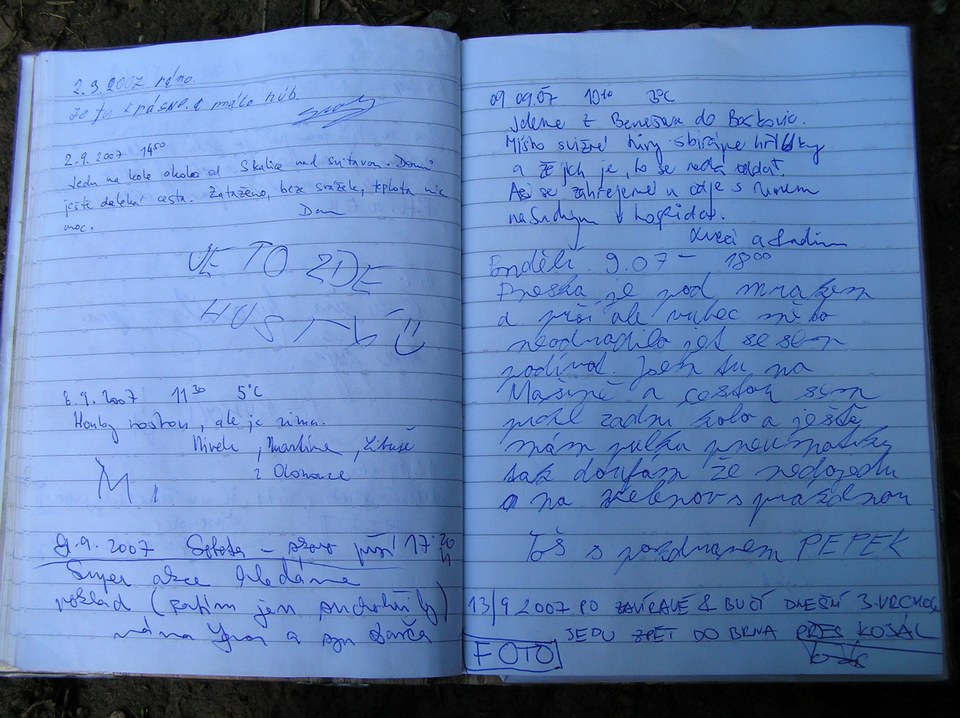 2.9.2007 ráno.
Je tu krásně a málo hub.
2.9.2007 14⁵⁰
Jedu na kole okolo od Skalice nad Svitavou. Domů
ještě daleká cesta. Zataženo, bez srážek, teplota nic
moc. Dan
JE TO ZDE
HUSTÝ
6.9.2007 11³⁰ 5°C
Houby rostou, ale je zima.
Mirek, Martina, Libuše
z Olomouce
M.
9.2007 Sobota – prší 17:20
Super akce hledáme
poklad (zatím jen
máma a syn
09 09.07 10¹⁰ 3°C
Jdeme z Benešova do Boskovic.
Místo svižné túry sbíráme hříbky
a že jich je, to se nedá odolat.
Asi se zahřejeme u čaje s rumem
na Suchým
a Radim
Pondělí 9.07 – 18⁰⁰
Dneska je pod mrakem
a prší ale vůbec mě to
neodradilo jet se sem
podívat. Jsem tu na
Mašině a cestou sem
píchl zadní kolo a ještě
mám půlku pneumatiky
tak doufám že nedojedu
na s prázdnou
Tož s pozdravem PEPEK
13/9 2007 PO ZAVÍRAVÉ & BUČÍ DNEŠNÍ 3. VRCHOL
JEDU ZPĚT DO BRNA PŘES KOJÁL
FOTO